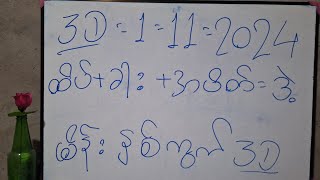 3D = 1 = 11 = 2024
ထိပ် + ခါး + အပိတ် = ဒဲ့
ထိန်း နှစ်ကွက် 3D